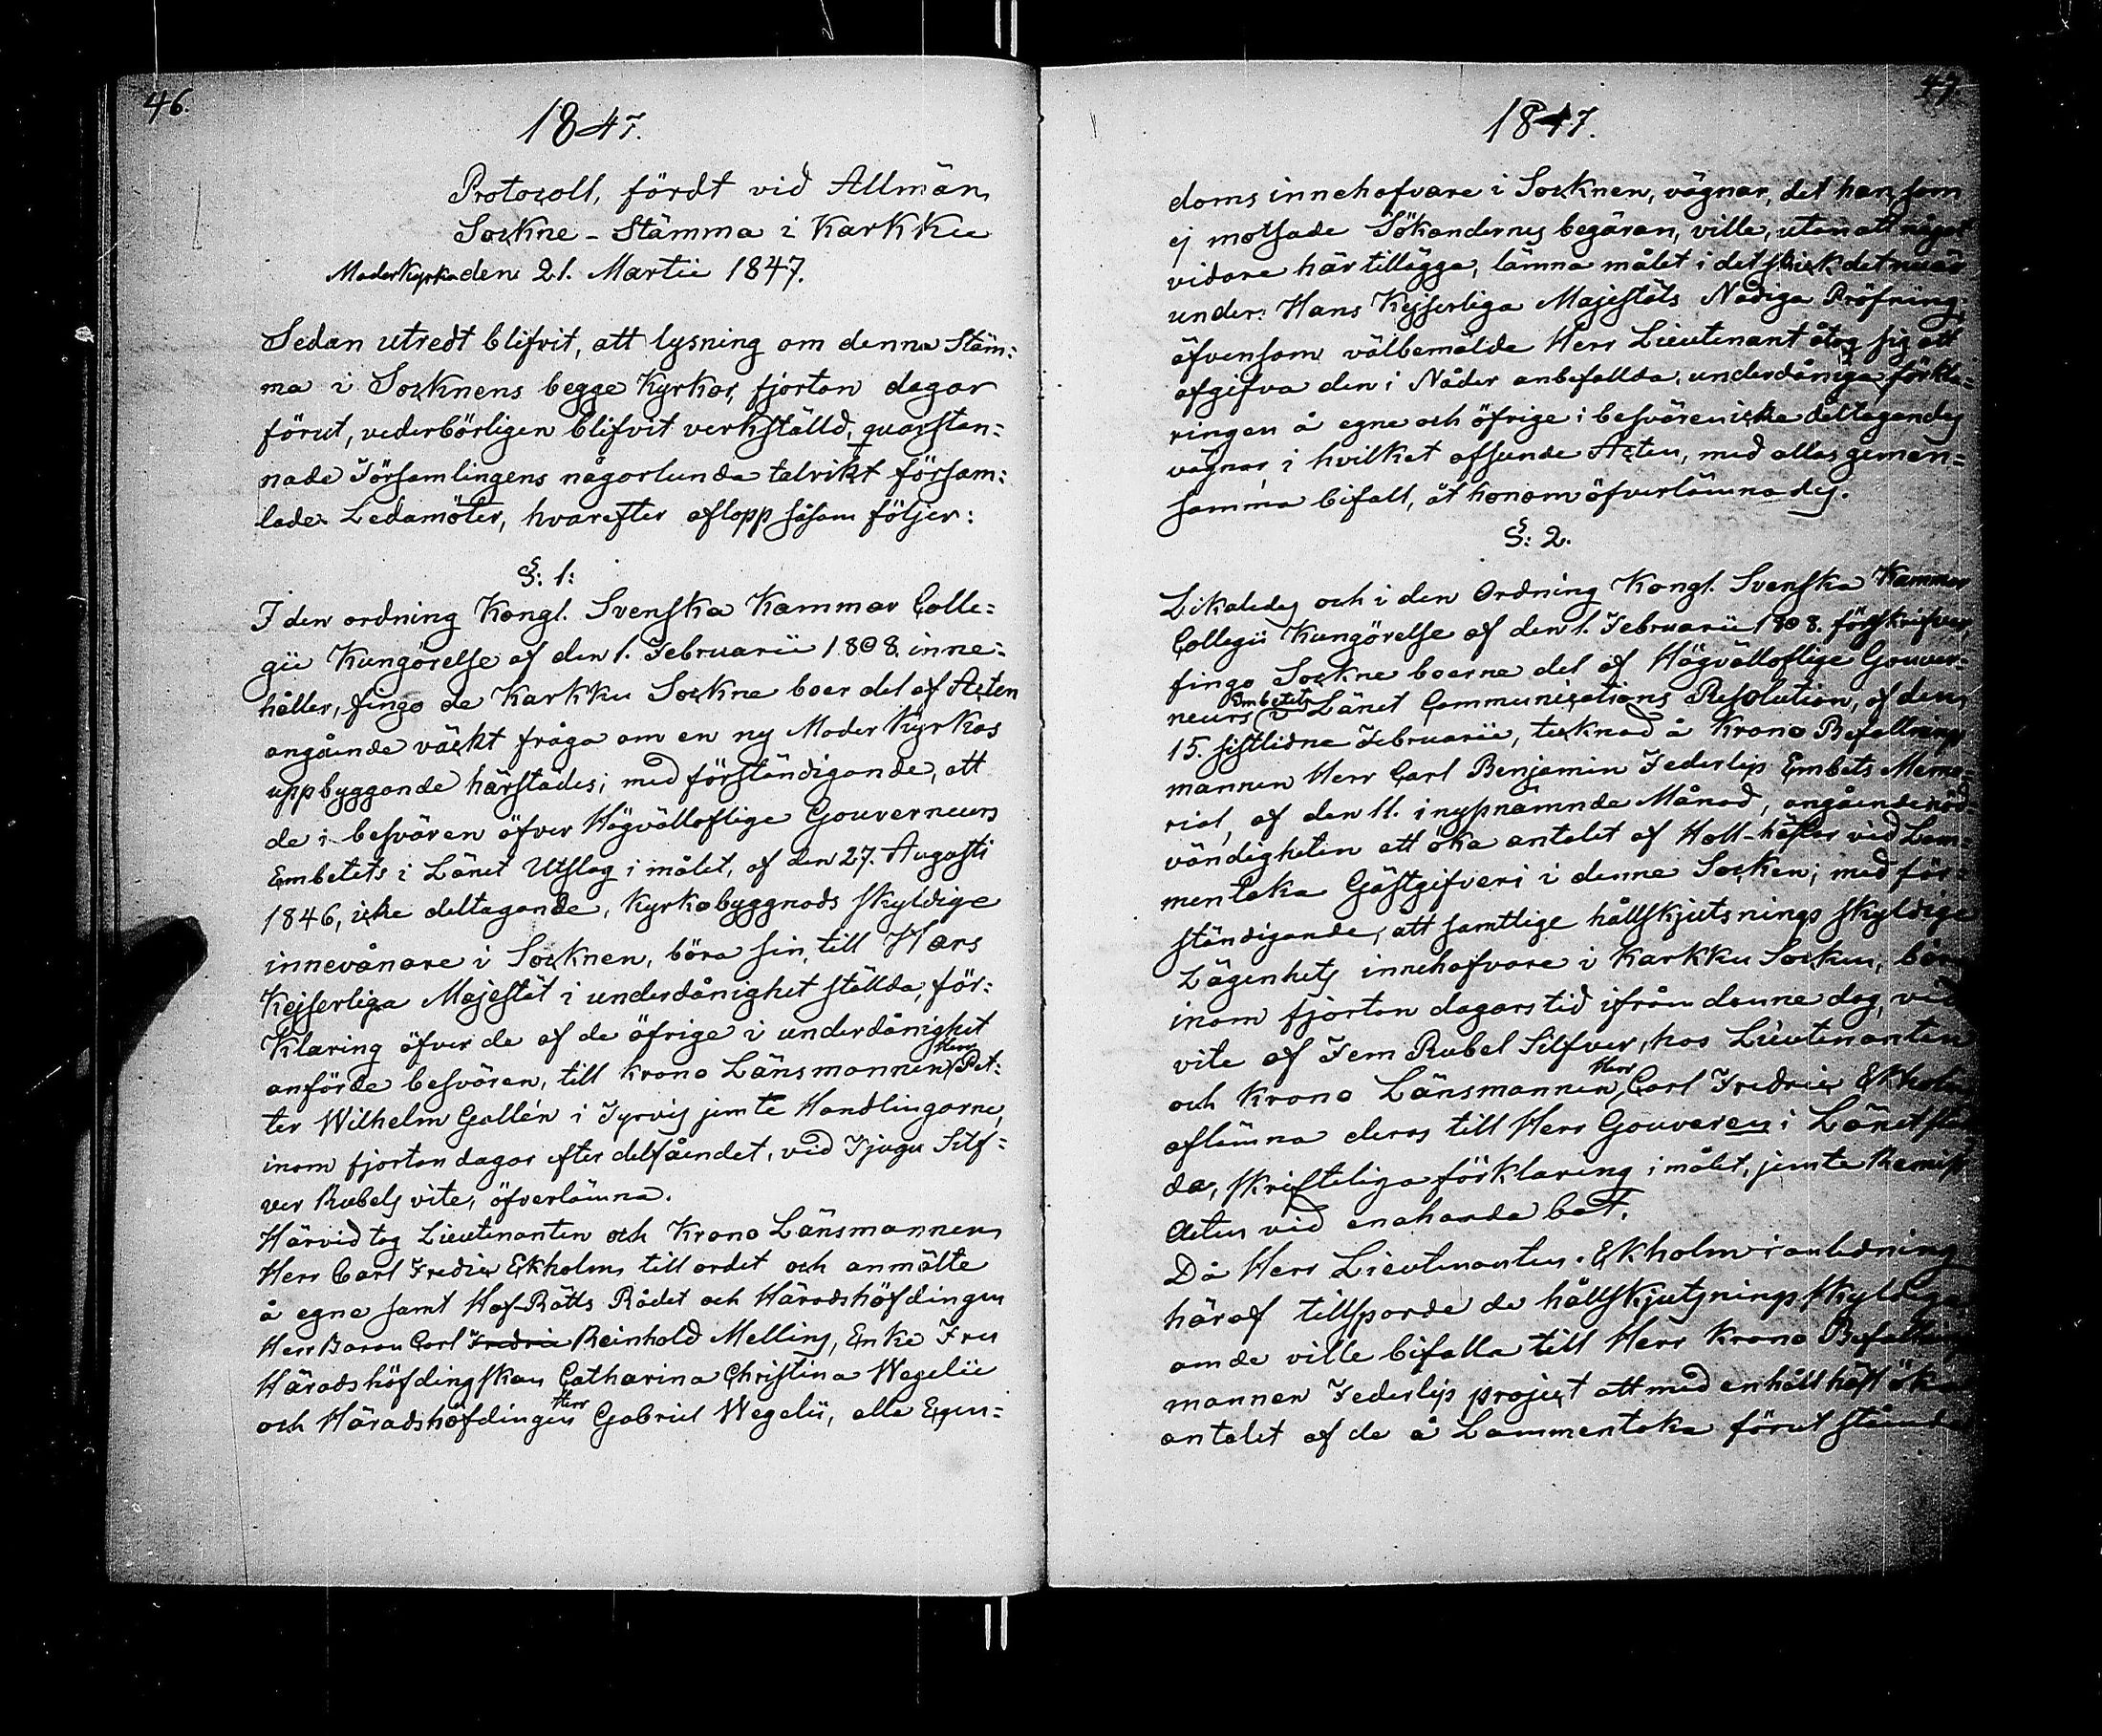 46.
1847.
Protocoll, fördt vid Allmän
Sockne-Stämma i Karkku
Moderkyrka den 21. Martii 1847.
Sedan utredt blifvit, att lysning om denna Stäm:
ma i Socknens begge Kyrkor, fjorton dagar
förut, vederbörligen blifvit verkställd, quarstan:
nade Församlingens någorlunda talrikt försam:
lade Ledamöter, hvarefter aflopp såsom följer:
§: 1:
I den ordning Kongl. Svenska Kammar Colle:
gii Kungörelse af den 1. Februarii 1808. inne:
håller, fingo de Karkku Sockne boer del af Acten
angående väckt fråga om en ny Moder Kyrkas
uppbyggande härstädes; med förständigande, att
de i besvären öfver Högvälloflige Gouverneurs
Embetets i Länet Utslag i målet, af den 27. Augusti
1846, icke deltagande, Kyrkobyggnads skyldige
innevånare i Socknen, böra sin, till Hans
Kejserliga Majestät i underdånighet ställda, för:
klaring öfver de af de öfrige i underdånighet
anförde besvären, till Krono Länsmannen Herr Pet:
ter Wilhelm Gallén i Tyrvis jemte Handlingarne,
inom fjorton dagar efter delfåendet, vid Tjugu Silf:
ver Rubels vite, öfverlämna.
Härvid tog Lieutenanten och Krono Länsmannen
Herr Carl Fredric Ekholm till ordet och anmälte
å egne samt Hof-Rätts Rådet och Häradshöfdingen
Herr Baron Carl Fredric Reinhold Mellins, Enke Fru
Häradshöfdingskan Catharina Christina Wegelii
och Häradshöfdingen Herr Gabriel Wegelii, alla Egen:
47.
1847.
doms innehafvare i Socknen, vägnar, det han, som
ej motsade Sökandernes begäran, ville, utan att något
vidare härtillägga, lämna målet i det skick det nu är
under Hans Kejserliga Majestäts Nådiga Pröfning;
äfvensom välbemälde Herr Lieutenant åtog sig att
afgifva den i Nåder anbefallda, underdåniga förkla:
ringen å egne och öfrige i besvären icke deltagandes
vägnar i hvilket afseende Acten, med allas gemen:
samma bifall, åt honom öfverlämnades.
§: 2.
Likaledes och i den Ordning Kongl. Svenska Kammar
Collegii Kungörelse af den 1. Februarii 1808. förskrifver,
fingo Sockne boerne del af Högvälloflige Gouver:
neurs Embetets i Länet Communications Resolution, af den
15. sistlidne Februarii, tecknad å Krono Befallnings
mannen Herr Carl Benjamin Federleys Embets Memo:
rial, af den 11. i nyssnämnde Månad, angående nöd:
vändigheten att öka antalet af Holl-hästar vid Lam:
mentaka Gästgifveri i denne Socken; med för:
ständigande, att samtlige hållskjutsnings skyldige
Lägenhets innehafvare i Karkku Socken, böra
inom fjorton dagars tid ifrån denne dag, vid
vite af Fem Rubel Silfver, hos Lieutenanten
och Krono Länsmannen Herr Carl Fredric Ekholm
aflämna deras till Herr Gouveren i Länet ställ
da, skrifteliga förklaring i målet, jemte Remiss
Acten vid enahanda bot.
Då Herr Lieutenanten Ekholm i anledning
häraf tillsporde de hållskjutsnings skyldiga
om de ville bifalla till Herr Krono Befallnings
mannen Federleys project att med en håll häst öka
antalet af de å Lammentaka förut stående